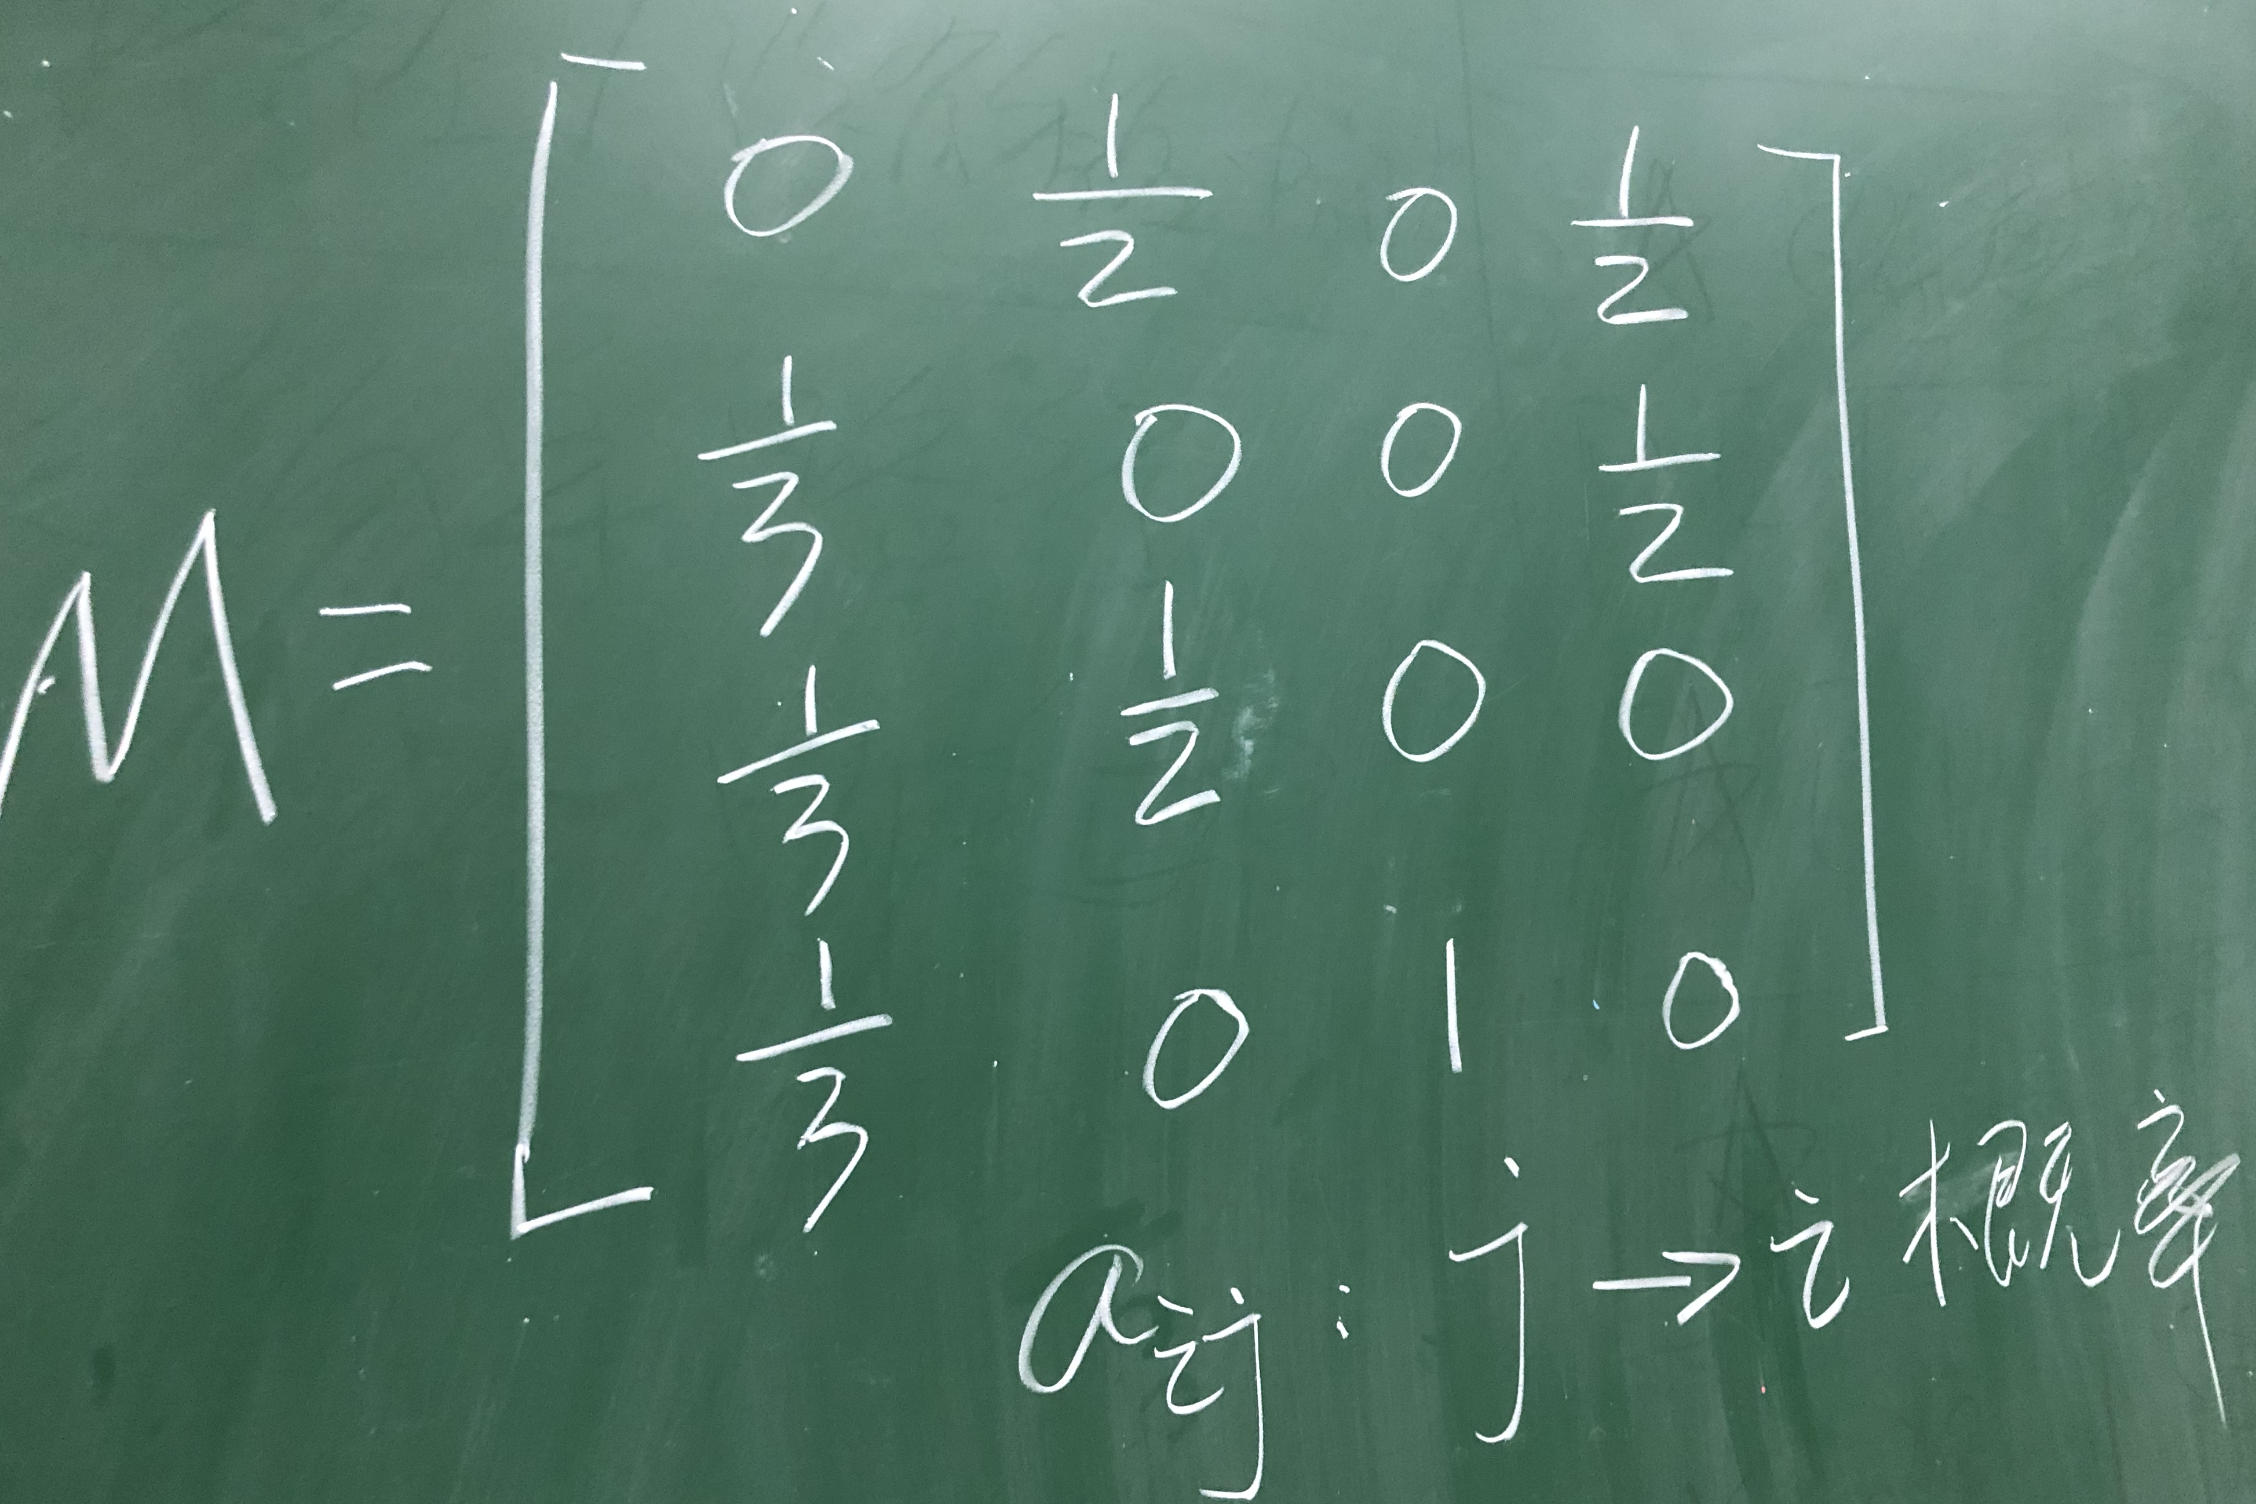 0 1/2 0 1/2
1/3 0 0 1/2
M = 1/3 1/2 0 0
1/3 0 1 0
aij : j → i 概率